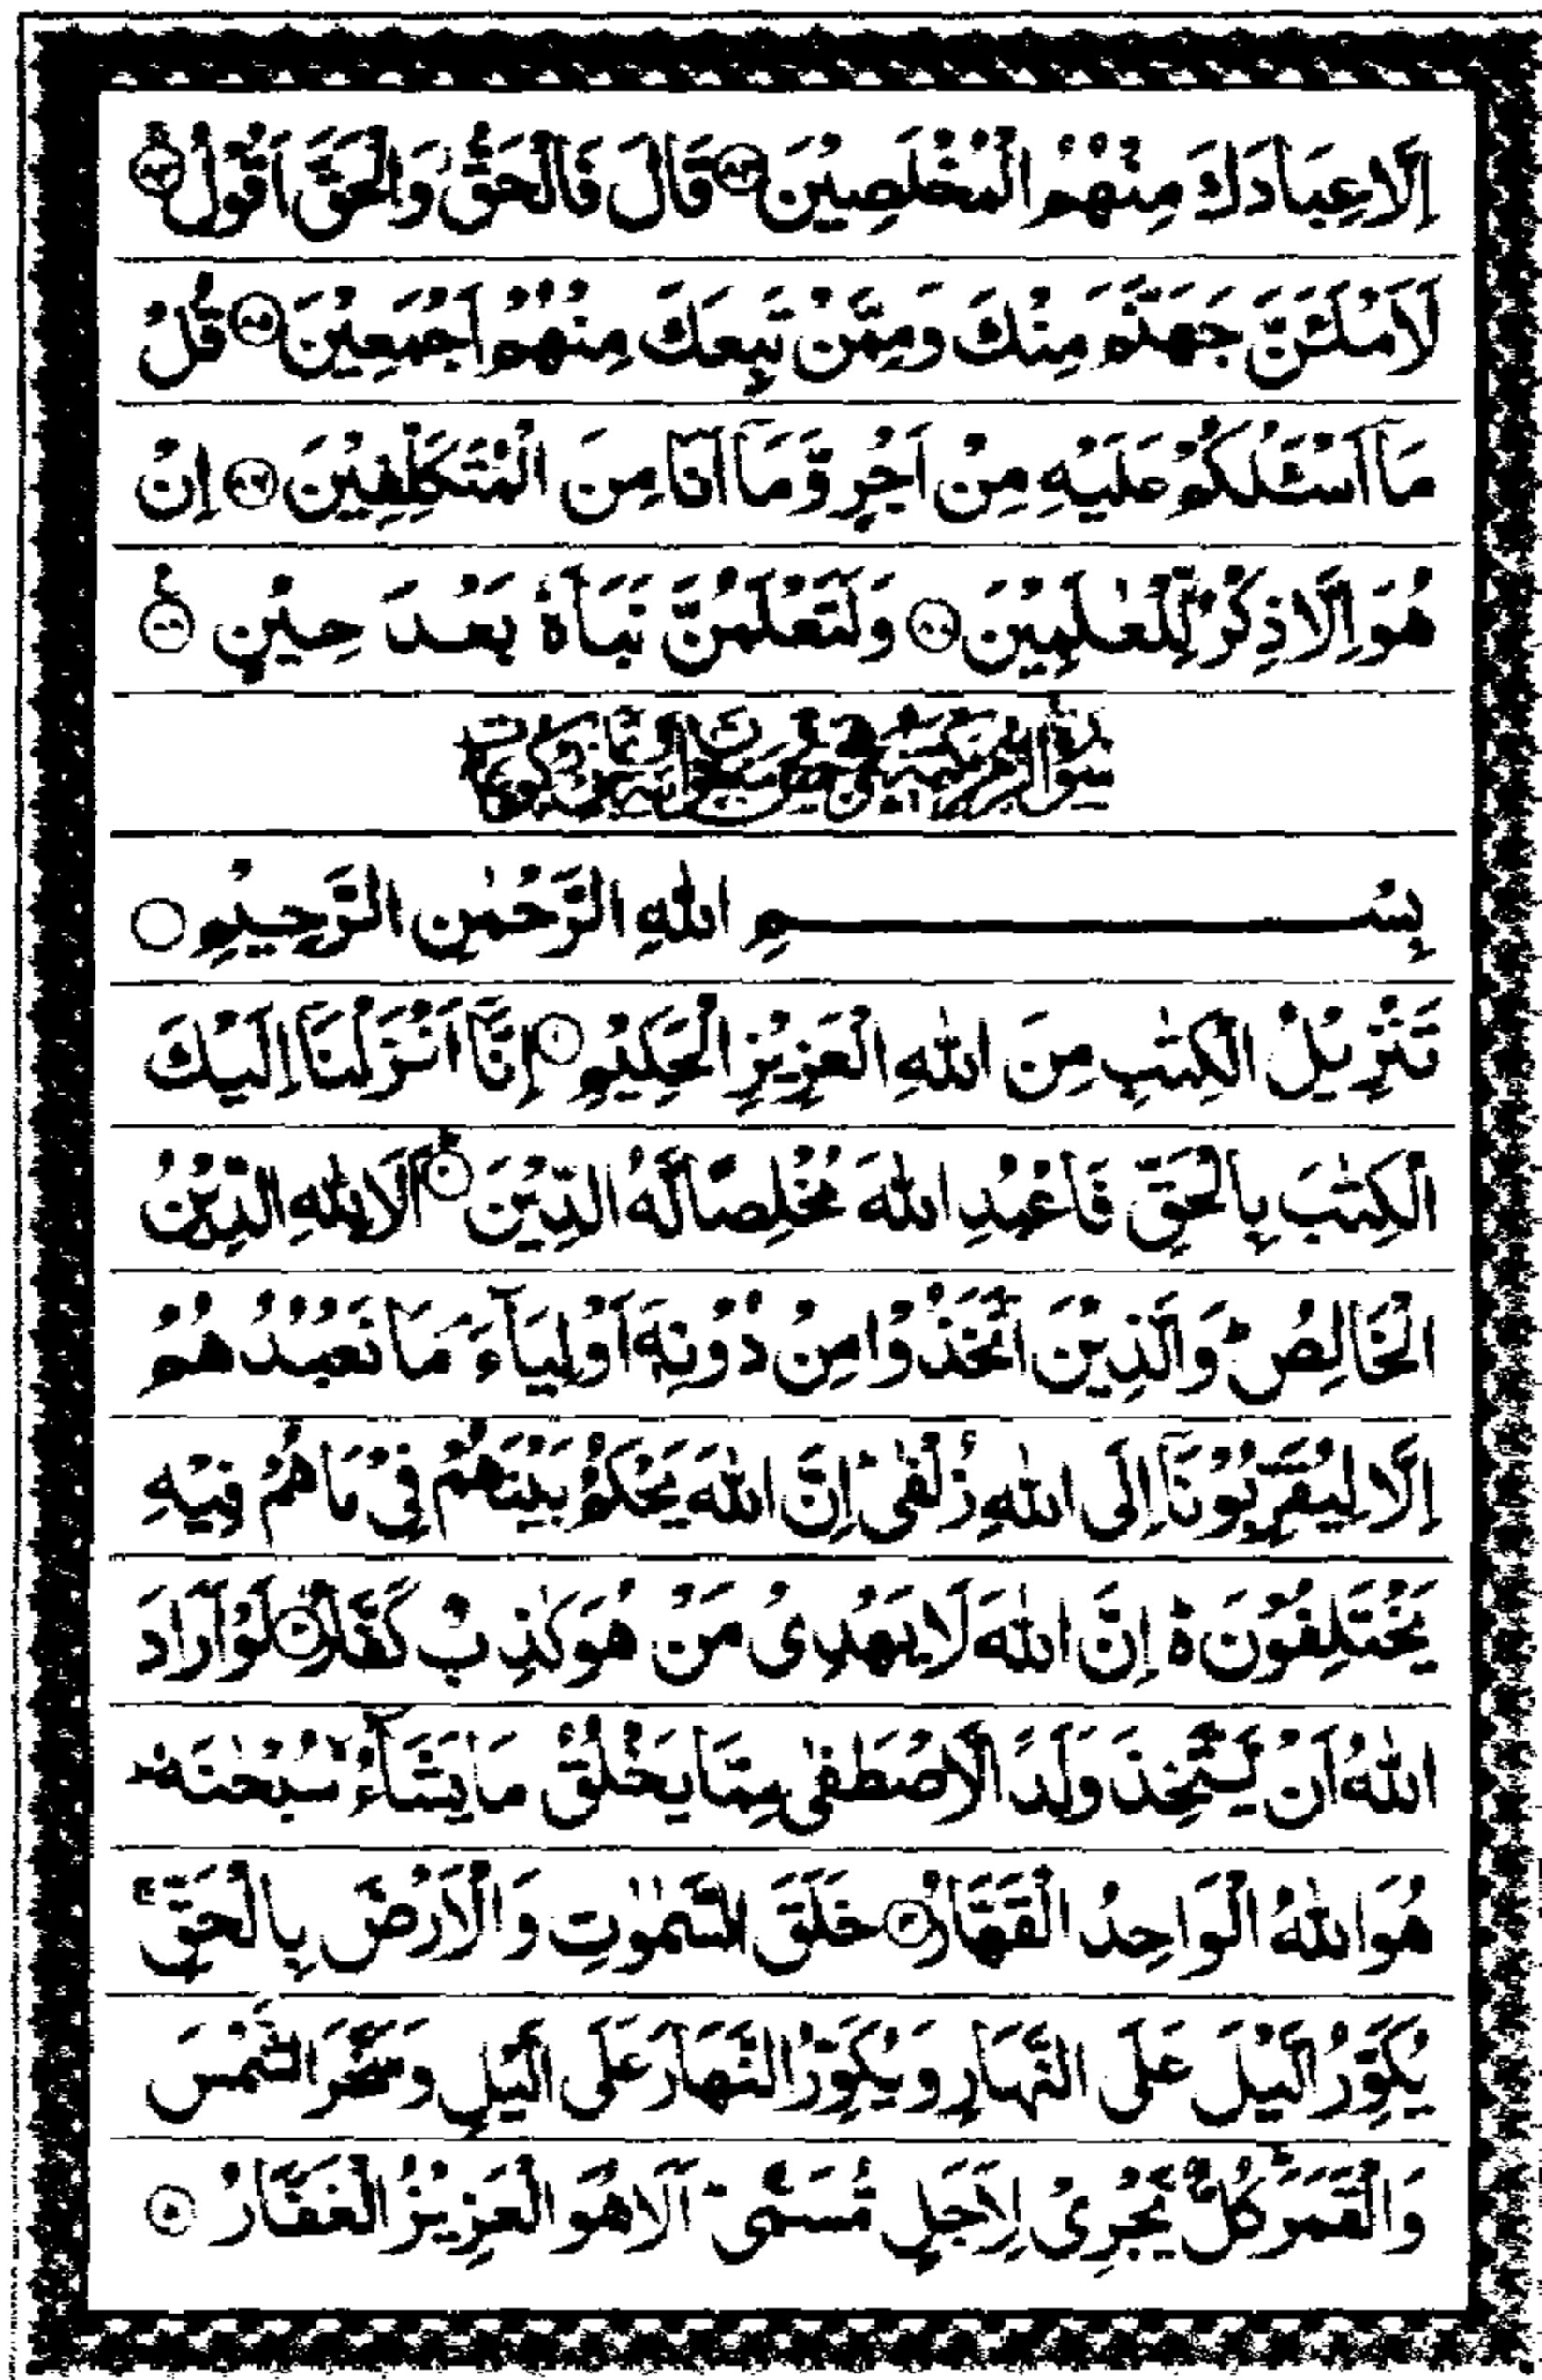 اِلَّا عِبَادَكَ مِنْهُمُ الْمُخْلَصِيْنَ ﴿۸۳﴾ قَالَ فَالْحَقُّ وَالْحَقَّ اَقُوْلُ ﴿۸۴﴾
لَاَمْلَـَٔنَّ جَهَنَّمَ مِنْكَ وَمِمَّنْ تَبِعَكَ مِنْهُمْ اَجْمَعِيْنَ ﴿۸۵﴾ قُلْ
مَاۤ اَسْـَٔلُكُمْ عَلَيْهِ مِنْ اَجْرٍ وَّمَاۤ اَنَا مِنَ الْمُتَكَلِّفِيْنَ ﴿۸۶﴾ اِنْ
هُوَ اِلَّا ذِكْرٌ لِّلْعٰلَمِيْنَ ﴿۸۷﴾ وَلَتَعْلَمُنَّ نَبَاَهٗ بَعْدَ حِيْنٍ ﴿۸۸﴾
بِسْمِ اللهِ الرَّحْمٰنِ الرَّحِيْمِ
تَنْزِيْلُ الْكِتٰبِ مِنَ اللهِ الْعَزِيْزِ الْحَكِيْمِ ﴿۱﴾ اِنَّاۤ اَنْزَلْنَاۤ اِلَيْكَ
الْكِتٰبَ بِالْحَقِّ فَاعْبُدِ اللهَ مُخْلِصًا لَّهُ الدِّيْنَ ﴿۲﴾ اَلَا لِلّٰهِ الدِّيْنُ
الْخَالِصُ ؕ وَالَّذِيْنَ اتَّخَذُوْا مِنْ دُوْنِهٖۤ اَوْلِيَآءَ ۘ مَا نَعْبُدُهُمْ
اِلَّا لِيُقَرِّبُوْنَاۤ اِلَى اللهِ زُلْفٰى ؕ اِنَّ اللهَ يَحْكُمُ بَيْنَهُمْ فِيْ مَا هُمْ فِيْهِ
يَخْتَلِفُوْنَ ؕ اِنَّ اللهَ لَا يَهْدِيْ مَنْ هُوَ كٰذِبٌ كَفَّارٌ ﴿۳﴾ لَوْ اَرَادَ
اللهُ اَنْ يَّتَّخِذَ وَلَدًا لَّاصْطَفٰى مِمَّا يَخْلُقُ مَا يَشَآءُ ۙ سُبْحٰنَهٗ ؕ
هُوَ اللهُ الْوَاحِدُ الْقَهَّارُ ﴿۴﴾ خَلَقَ السَّمٰوٰتِ وَالْاَرْضَ بِالْحَقِّ ۚ
يُكَوِّرُ الَّيْلَ عَلَى النَّهَارِ وَيُكَوِّرُ النَّهَارَ عَلَى الَّيْلِ وَسَخَّرَ الشَّمْسَ
وَالْقَمَرَ ؕ كُلٌّ يَّجْرِيْ لِاَجَلٍ مُّسَمًّى ؕ اَلَا هُوَ الْعَزِيْزُ الْغَفَّارُ ﴿۵﴾